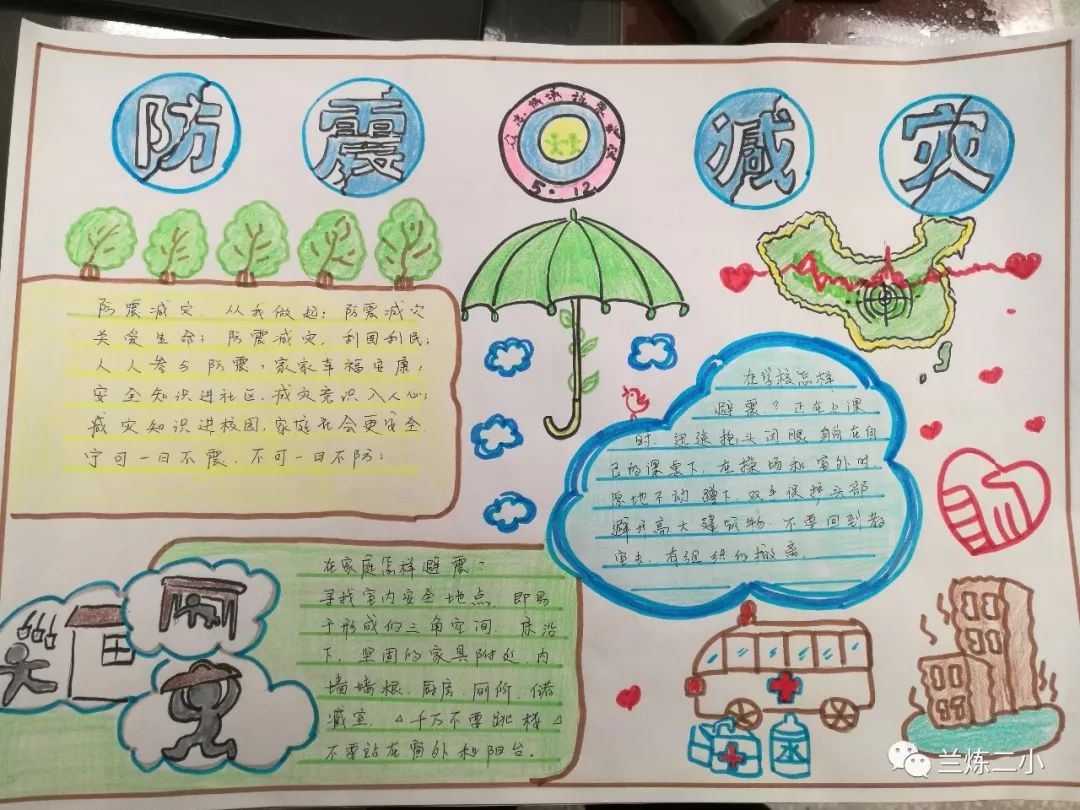 防震减灾
5.12
防震减灾.从我做起;防震减灾
关爱生命;防震减灾.利国利民;
人人参与防震;家家幸福安康;
安全知识进社区.减灾意识入人心;
减灾知识进校园.家庭社会更安全.
宁可一日不震.不可一日不防;
在学校怎样
避震?正在上课
时.迅速抱头闭眼.躲在自
己的课桌下.在操场和室外时
原地不动蹲下.双手保护头部
避开高大建筑物.不要回到教
室去.有组织的撤离.
在家庭怎样避震?
寻找室内安全地点.即易
于形成的三角空间.床沿
下.坚固的家具附近.内
墙墙根.厨房.厕所.储
藏室.△千万不要跳楼△
不要站在窗外和阳台。
水
兰炼二小